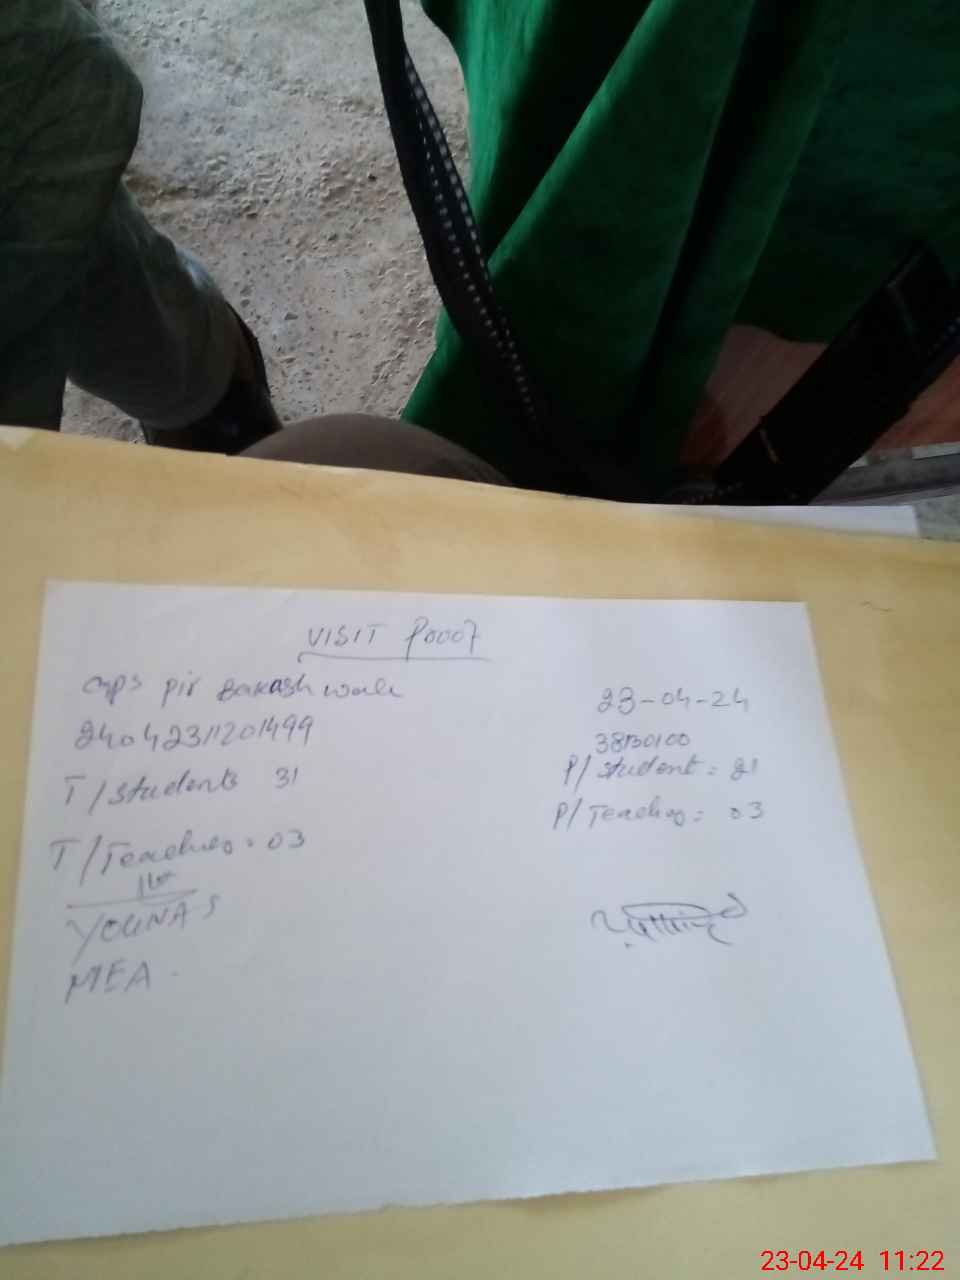 VISIT P0007
GPS Pir Bakash wali
23-04-24
24042311201499
38130100
T/Students 31
P/Student = 21
T/Teachers = 03
P/Teachers = 03
YOUNAS
MEA
23-04-24 11:22